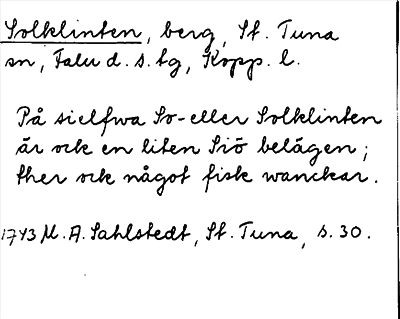 Solklinten, berg, St. Tuna
sn, Falu d. s. tg, Kopp. l.
På sielfwa So- eller Solklinten
är ock en liten Siö belägen;
ther ock något fisk wanckar.
1743 M. A. Sahlstedt, St. Tuna, s. 30.